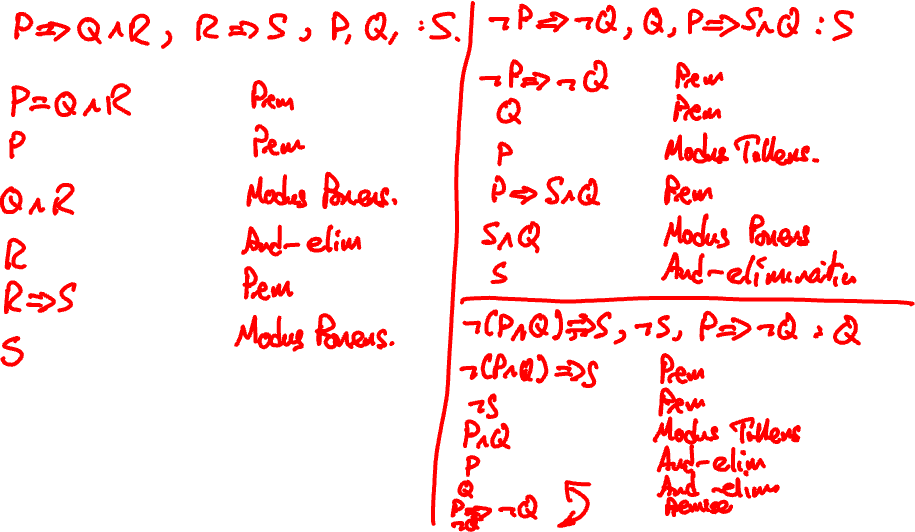 P⇒Q∧R, R⇒S, P, Q, : S.
P=Q∧R Prem
P Prem
Q∧R Modus Ponens.
R And-elim
R⇒S Prem
S Modus Ponens.
¬P⇒¬Q, Q, P⇒S∧Q : S
¬P⇒¬Q Prem
Q Prem
P Modus Tollens.
P⇒S∧Q Prem
S∧Q Modus Ponens
S And-elimination
¬(P∧Q)⇒S, ¬S, P⇒¬Q : Q
¬(P∧Q)⇒S Prem
¬S Prem
P∧Q Modus Tollens
P And-elim
Q And-elim
P⇒¬Q Premise
¬Q